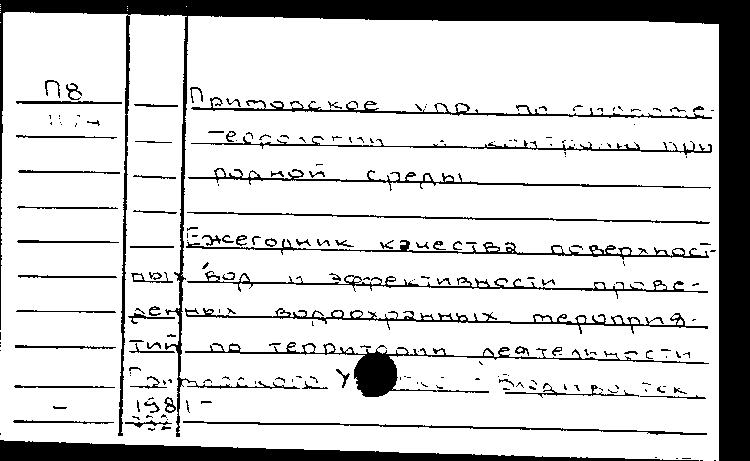 П8
Приморское упр. по гидроме-
теорологии и контролю при
родной среды
Ежегодник качества поверхност-
ных вод и эффективности прове-
денных водоохранных мероприя-
тий по территории деятельности
Приморского Владивосток,
1981-